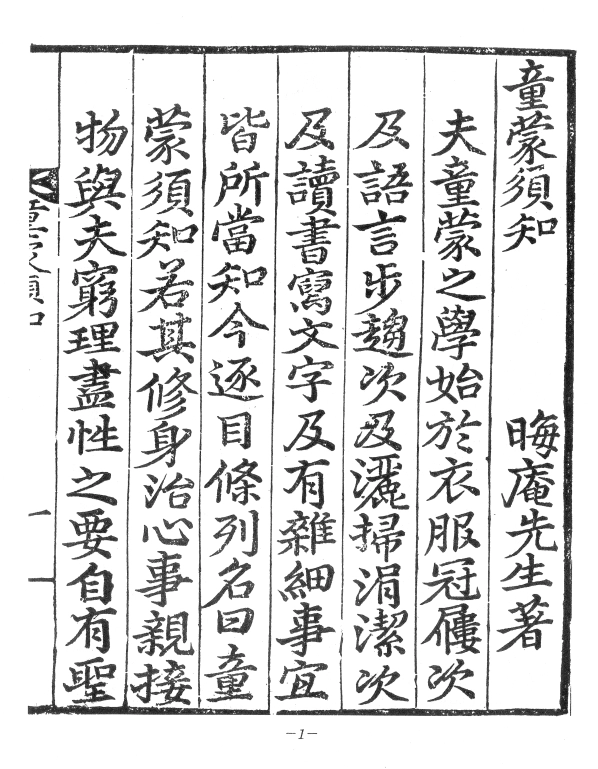 童蒙須知 晦庵先生著
夫童蒙之學始於衣服冠屨次
及語言步趨次及灑掃涓潔次
及讀書寫文字及有雜細事宜
皆所當知今逐目條列名曰童
蒙須知若其修身治心事親接
物與夫窮理盡性之要自有聖
一
-1-